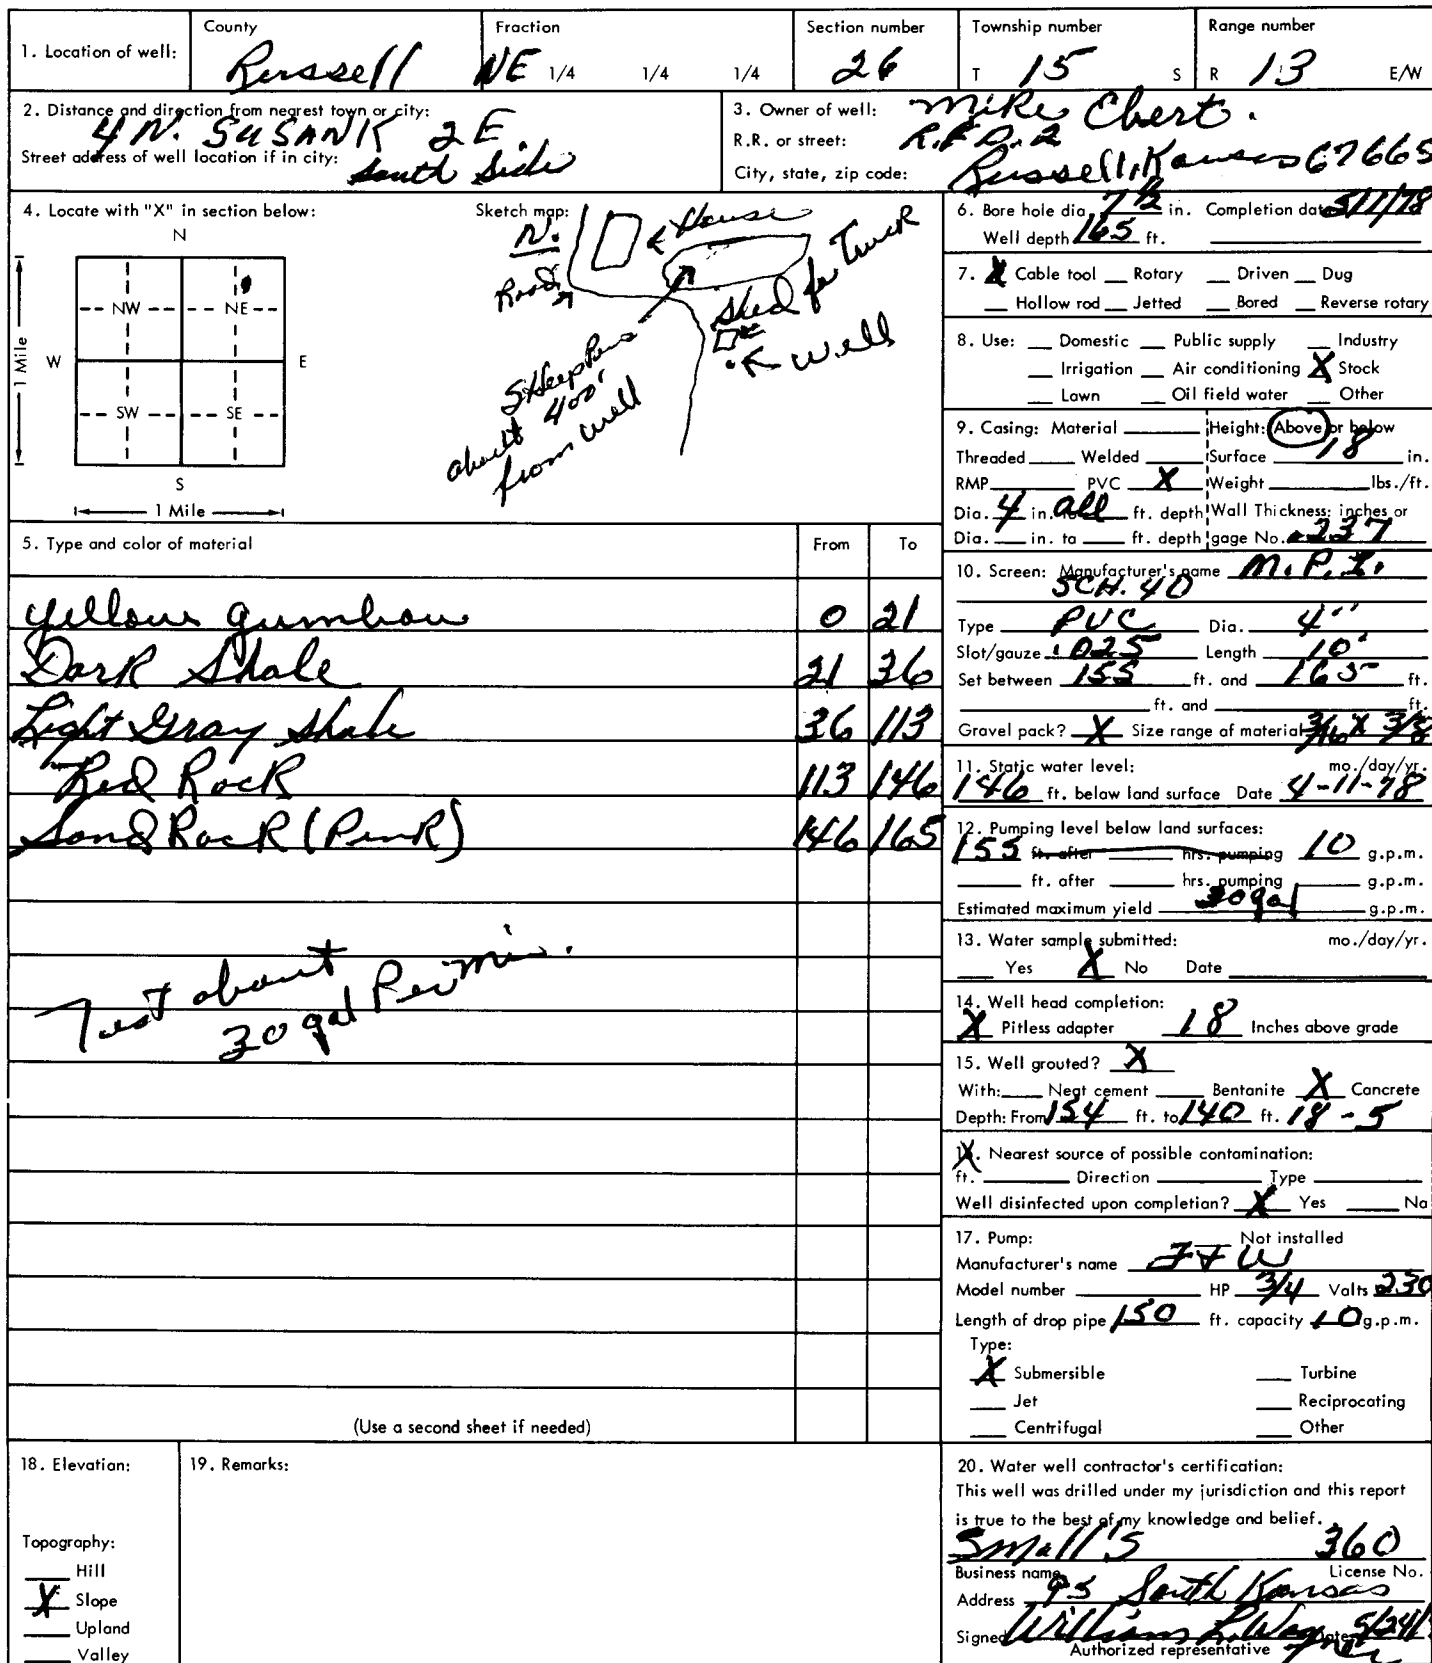 County Fraction Section number Township number Range number
1. Location of well: Russell NE 1/4 1/4 1/4 26 T 15 S R 13 E/W
2. Distance and direction from nearest town or city:
4 N. SUSANK 2E
Street address of well location if in city:
South Side
3. Owner of well: Mike Ebert.
R.R. or street: R.F.D. 2
City, state, zip code: Russell, Kansas 67665
4. Locate with "X" in section below:
N
NW NE
W E
SW SE
S
1 Mile
1 Mile
Sketch map:
N.
House
Road
Shed for Truck
Well
Sheep Pens
about 400'
from well
5. Type and color of material From To
yellow gumbou 0 21
Dark Shale 21 36
Light Gray Shale 36 113
Red Rock 113 146
Sand Rock (Pink) 146 165
Test about
30 gal Per min.
(Use a second sheet if needed)
6. Bore hole dia. 7 1/2 in. Completion date 5/1/78
Well depth 165 ft.
7. X Cable tool Rotary Driven Dug
Hollow rod Jetted Bored Reverse rotary
8. Use: Domestic Public supply Industry
Irrigation Air conditioning X Stock
Lawn Oil field water Other
9. Casing: Material Height: Above or below
Threaded Welded Surface 18 in.
RMP PVC X Weight lbs./ft.
Dia. 4 in. to all ft. depth Wall Thickness: inches or
Dia. in. to ft. depth gage No. .237
10. Screen: Manufacturer's name M.P.I.
SCH. 40
Type PVC Dia. 4"
Slot/gauze .025 Length 10'
Set between 155 ft. and 165 ft.
ft. and ft.
Gravel pack? X Size range of material 3/16 X 3/8
11. Static water level: mo./day/yr.
146 ft. below land surface Date 4-11-78
12. Pumping level below land surfaces:
155 ft. after hrs. pumping 10 g.p.m.
ft. after hrs. pumping g.p.m.
Estimated maximum yield 30 gal g.p.m.
13. Water sample submitted: mo./day/yr.
Yes X No Date
14. Well head completion:
X Pitless adapter 18 Inches above grade
15. Well grouted? X
With: Neat cement Bentonite X Concrete
Depth: From 154 ft. to 140 ft. 18 - 5
X. Nearest source of possible contamination:
ft. Direction Type
Well disinfected upon completion? X Yes No
17. Pump: Not installed
Manufacturer's name F & W
Model number HP 3/4 Volts 230
Length of drop pipe 150 ft. capacity 10 g.p.m.
Type:
X Submersible Turbine
Jet Reciprocating
Centrifugal Other
18. Elevation:
Topography:
Hill
X Slope
Upland
Valley
19. Remarks:
20. Water well contractor's certification:
This well was drilled under my jurisdiction and this report
is true to the best of my knowledge and belief.
Small's 360
Business name License No.
Address 95 South Kansas
Signed William L. Wagner Date 5/24/
Authorized representative